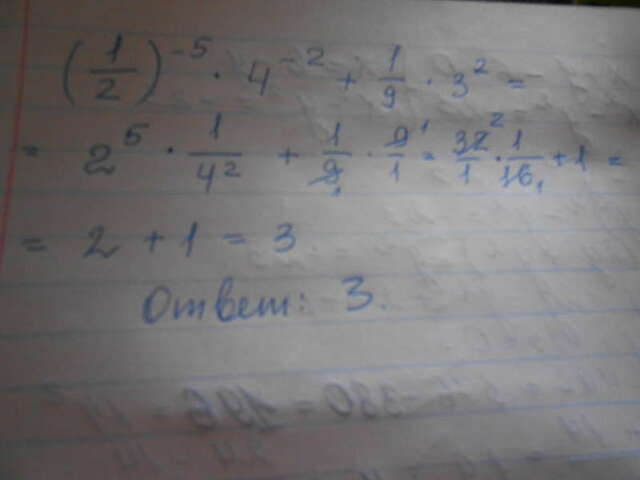 (1/2)^-5 · 4^-2 + 1/9 · 3^2 =
= 2^5 · 1/4^2 + 1/9 · 9/1 = 32/1 · 1/16 + 1 =
= 2 + 1 = 3
Ответ: 3.